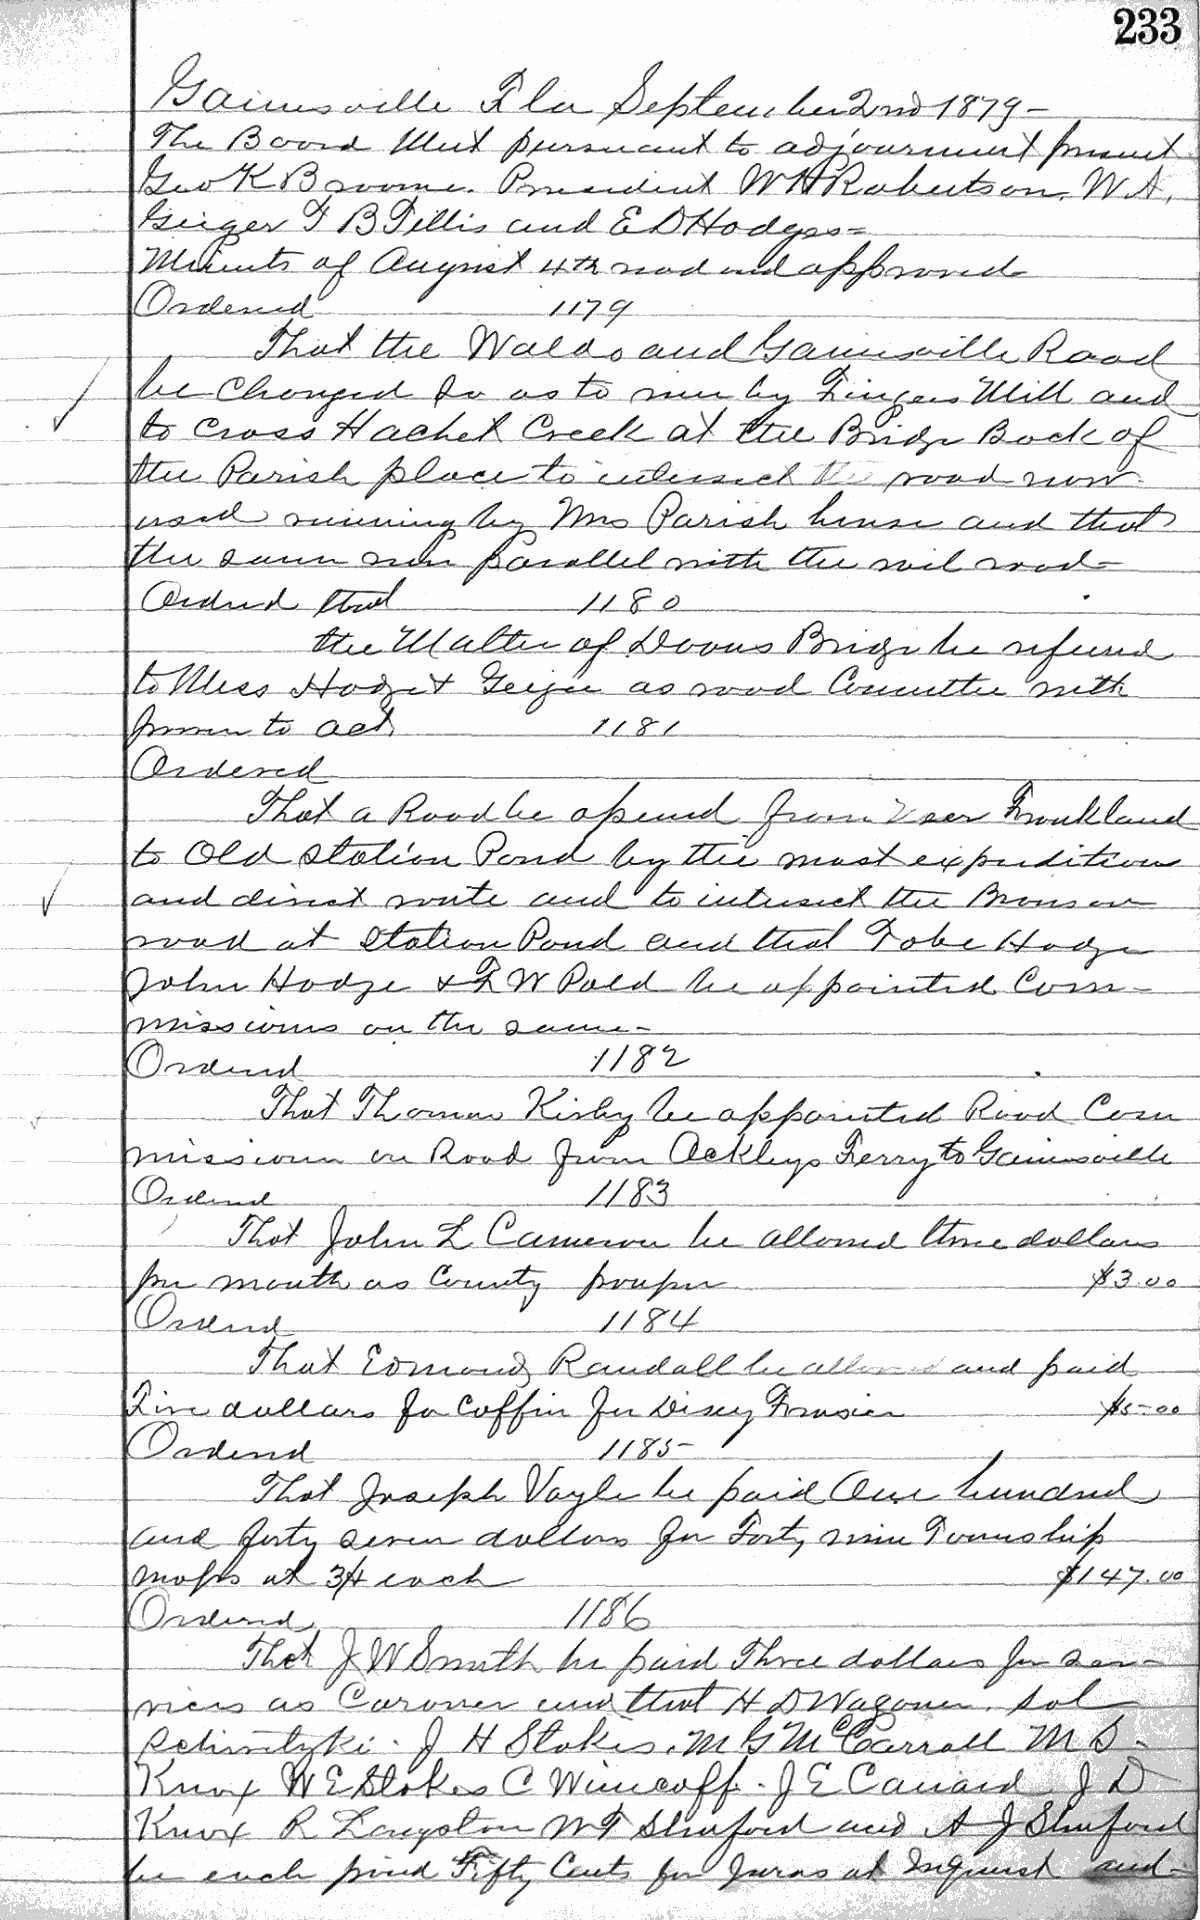 233
Gainesville Fla September 2nd 1879-
The Board Met pursuant to adjournment present
Geo K Broome. President W H Robertson. W. A.
Geiger F B Tillis and E D Hodges=
Minuts of August 4th read and approved
Ordered 1179
That the Waldo and Gainesville Road
be changed So as to run by Fingers Mill and
to cross Hachet Creek at the Bridge Back of
the Parish place to intersect the road now
used running by Mrs Parish house and that
the same run parallel with the rail road=
Ordred that 1180
the Matter of Bridge be refered
to Mess Hodge & Geiger as road Committee with
power to act 1181
Ordered
That a Road be opened from near Frankland
to Old Station Pond by the most expedition
and direct route and to intersect the Bronson
road at Station Pond and that Tobe Hodge
John Hodge & F W be appointed Com-
missioners on the same-
Ordered 1182
That Thomas Kirby be appointed Road Com
missioner on Road from Ackleys Ferry to Gainesville
Ordered 1183
That John L Cameron be allowed three dollars
per month as County pauper $3.00
Ordered 1184
That Edmond Randall be allowed and paid
Five dollars for Coffin for Frasier $5.00
Ordered 1185
That Joseph Voyle be paid One hundred
and forty seven dollars for Forty nine Township
maps at each $147.00
Ordered 1186
That J W Smith be paid Three dollars for ser-
vices as Coroner and that H D Wagoner. Sol
J H Stokes. M G McCarroll M S.
Knox W E Stokes C Wimcoff. J E J D
Knox R Langston W T Shuford and A J Shuford
be each paid Fifty Cents for Juros at Inquest and-